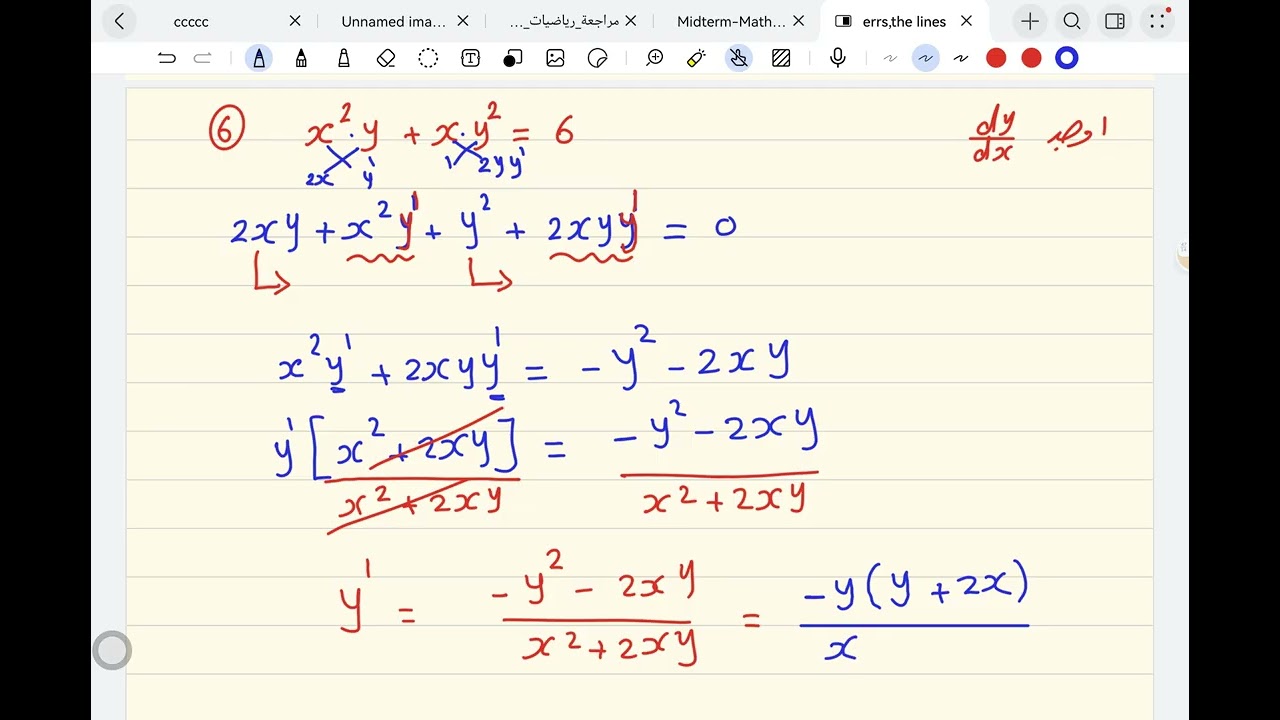 ccccc
Unnamed ima...
مراجعة_رياضيات_...
Midterm-Math...
errs,the lines
⑥ x²·y + x·y² = 6
اوجد dy/dx
2x y' 1 2yy'
2xy + x²y' + y² + 2xyy' = 0
x²y' + 2xyy' = -y² - 2xy
y'[x² + 2xy] / x² + 2xy = -y² - 2xy / x² + 2xy
y' = -y² - 2xy / x² + 2xy = -y(y + 2x) / x